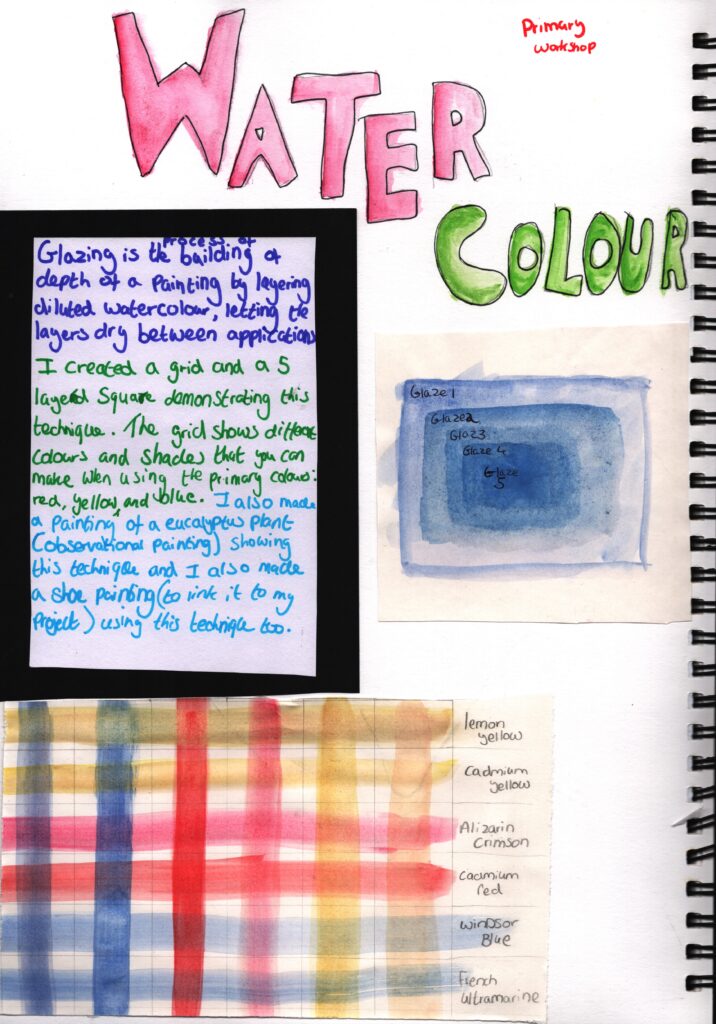 Primary
workshop
WATER
COLOUR
process of
Glazing is the building of
depth of a painting by layering
diluted watercolour, letting the
layers dry between applications
I created a grid and a 5
layered square demonstrating this
technique. The grid shows different
colours and shades that you can
make when using the primary colours:
red, yellow, and blue. I also made
a painting of a eucalyptus plant
(observational painting) showing
this technique and I also made
a shoe painting (to link it to my
project) using this technique too.
Glaze 1
Glaze 2
Glaz 3
Glaze 4
Glaze
5
lemon
yellow
Cadmium
yellow
Alizarin
Crimson
Cadmium
red
Windsor
Blue
French
Ultramarine